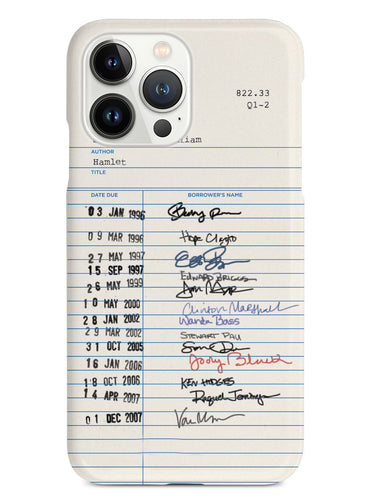 822.33
Q1-2
liam
AUTHOR
Hamlet
TITLE
DATE DUE BORROWER'S NAME
03 JAN 1996
09 MAR 1996 Hope Clayto
27 MAY 1997
15 SEP 1997 EDWARD BRIGGS
26 MAY 1999
10 MAY 2000 Clinton Marshall
28 JAN 2002 Wanda Bass
29 MAR 2002 STEWART PAU
31 OCT 2005
16 JAN 2006 Jody Black
18 OCT 2006 KEN HODGES
14 APR 2007 Raquel Jennings
01 DEC 2007